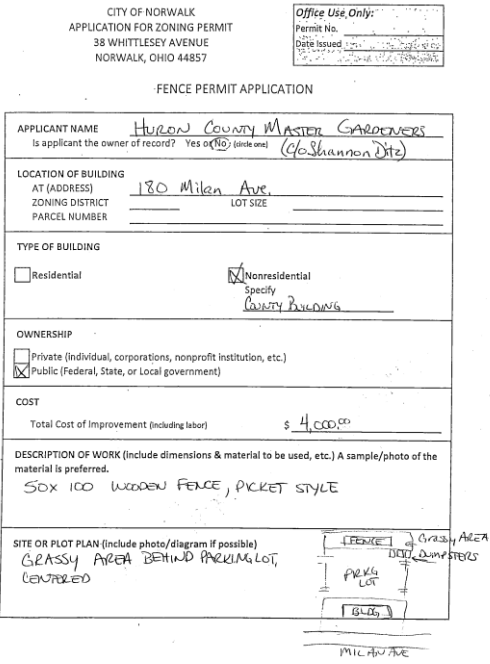 CITY OF NORWALK
APPLICATION FOR ZONING PERMIT
38 WHITTLESEY AVENUE
NORWALK, OHIO 44857
Office Use Only:
Permit No.
Date Issued
FENCE PERMIT APPLICATION
APPLICANT NAME HURON COUNTY MASTER GARDENERS
Is applicant the owner of record? Yes or No (circle one) (c/o Shannon Ditz)
LOCATION OF BUILDING
AT (ADDRESS) 180 Milan Ave.
ZONING DISTRICT LOT SIZE
PARCEL NUMBER
TYPE OF BUILDING
Residential Nonresidential
Specify
COUNTY BUILDING
OWNERSHIP
Private (individual, corporations, nonprofit institution, etc.)
Public (Federal, State, or Local government)
COST
Total Cost of Improvement (including labor) $ 4,000.00
DESCRIPTION OF WORK (include dimensions & material to be used, etc.) A sample/photo of the
material is preferred.
50 X 100 WOODEN FENCE, PICKET STYLE
SITE OR PLOT PLAN (include photo/diagram if possible)
GRASSY AREA BEHIND PARKING LOT,
CENTERED
FENCE GRASSY AREA
DUMPSTERS
PRKG
LOT
BLDG
MILAN AVE